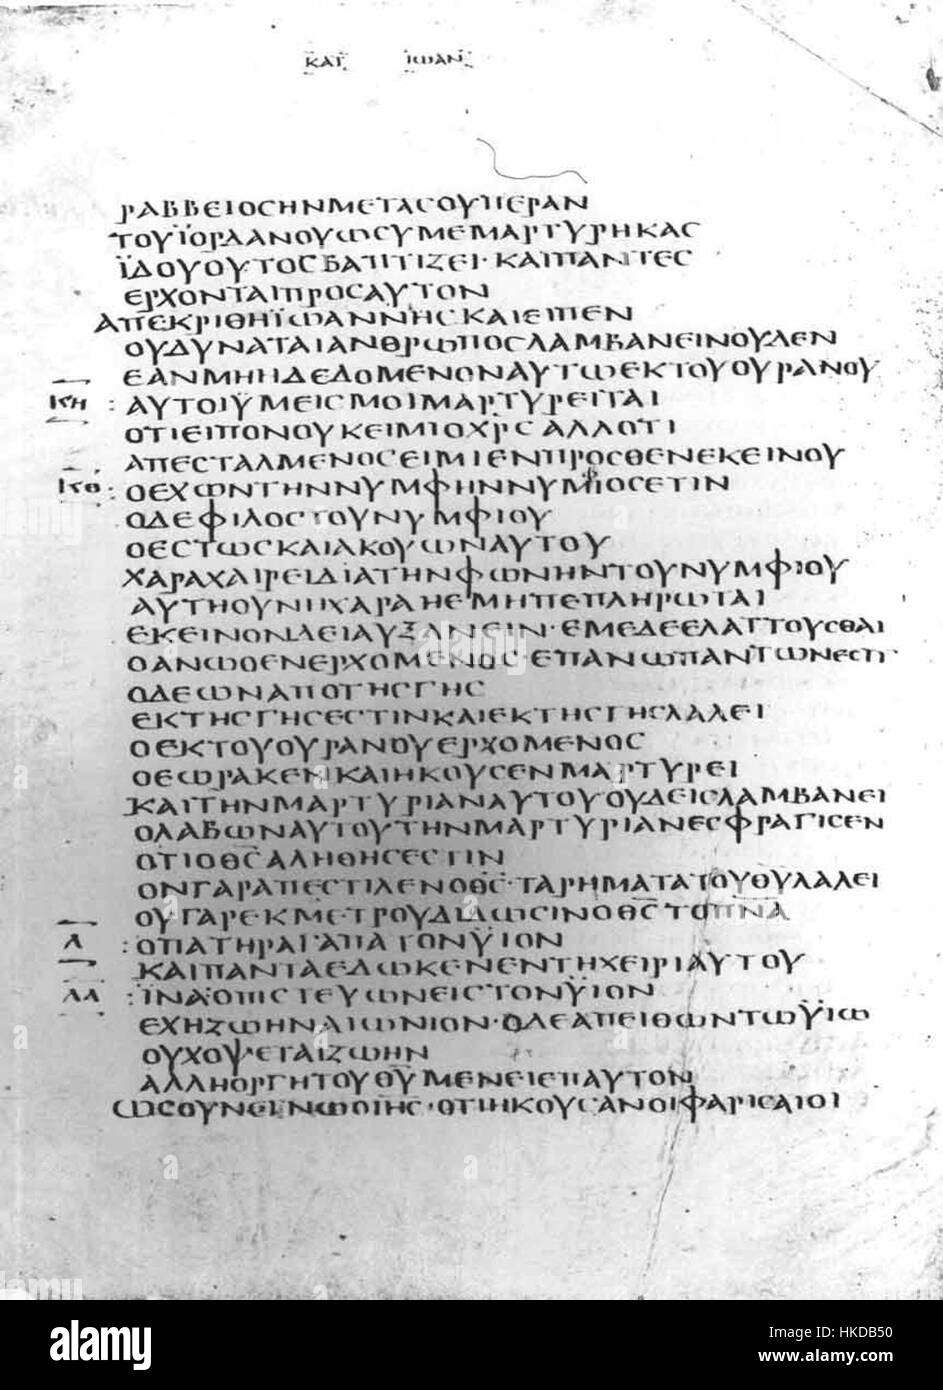 ΚΑΤ ΙΩΑΝ
ΡΑΒΒΕΙΟϹΗΝΜΕΤΑϹΟΥΠΕΡΑΝ
ΤΟΥΪΟΡΔΑΝΟΥΩϹΥΜΕΜΑΡΤΥΡΗΚΑϹ
ΪΔΟΥΟΥΤΟϹΒΑΠΤΙΖΕΙ·ΚΑΙΠΑΝΤΕϹ
ΕΡΧΟΝΤΑΙΠΡΟϹΑΥΤΟΝ
ΑΠΕΚΡΙΘΗΪΩΑΝΝΗϹΚΑΙΕΙΠΕΝ
ΟΥΔΥΝΑΤΑΙΑΝΘΡΩΠΟϹΛΑΜΒΑΝΕΙΝΟΥΔΕΝ
ΕΑΝΜΗΗΔΕΔΟΜΕΝΟΝΑΥΤΩΕΚΤΟΥΟΥΡΑΝΟΥ
ΚΗ : ΑΥΤΟΙΫΜΕΙϹΜΟΙΜΑΡΤΥΡΕΙΤΑΙ
ΟΤΙΕΙΠΟΝΟΥΚΕΙΜΙΟΧΡϹΑΛΛΟΤΙ
ΑΠΕϹΤΑΛΜΕΝΟϹΕΙΜΙΕΝΠΡΟϹΘΕΝΕΚΕΙΝΟΥ
ΚΘ : ΟΕΧΩΝΤΗΝΝΥΜΦΗΝΝΥΜΙΟϹΕΤΙΝ
ΟΔΕΦΙΛΟϹΤΟΥΝΥΜΦΙΟΥ
ΟΕϹΤΩϹΚΑΙΑΚΟΥΩΝΑΥΤΟΥ
ΧΑΡΑΧΑΙΡΕΙΔΙΑΤΗΝΦΩΝΗΝΤΟΥΝΥΜΦΙΟΥ
ΑΥΤΗΟΥΝΗΧΑΡΑΗΕΜΗΠΕΠΛΗΡΩΤΑΙ
ΕΚΕΙΝΟΝΔΕΙΑΥΞΑΝΕΙΝ·ΕΜΕΔΕΕΛΑΤΤΟΥϹΘΑΙ
ΟΑΝΩΘΕΝΕΡΧΟΜΕΝΟϹΕΠΑΝΩΠΑΝΤΩΝΕϹΤΙ
ΟΔΕΩΝΑΠΟΤΗϹΓΗϹ
ΕΚΤΗϹΓΗϹΕϹΤΙΝΚΑΙΕΚΤΗϹΓΗϹΛΑΛΕΙ
ΟΕΚΤΟΥΟΥΡΑΝΟΥΕΡΧΟΜΕΝΟϹ
ΟΕΩΡΑΚΕΝΚΑΙΗΚΟΥϹΕΝΜΑΡΤΥΡΕΙ
ΚΑΙΤΗΝΜΑΡΤΥΡΙΑΝΑΥΤΟΥΟΥΔΕΙϹΛΑΜΒΑΝΕΙ
ΟΛΑΒΩΝΑΥΤΟΥΤΗΝΜΑΡΤΥΡΙΑΝΕϹΦΡΑΓΙϹΕΝ
ΟΤΙΟΘϹΑΛΗΘΗϹΕϹΤΙΝ
ΟΝΓΑΡΑΠΕϹΤΙΛΕΝΟΘϹ·ΤΑΡΗΜΑΤΑΤΟΥΘΥΛΑΛΕΙ
ΟΥΓΑΡΕΚΜΕΤΡΟΥΔΙΔΩϹΙΝΟΘϹΤΟΠΝΑ
Λ : ΟΠΑΤΗΡΑΓΑΠΑΤΟΝΫΙΟΝ
ΚΑΙΠΑΝΤΑΕΔΩΚΕΝΕΝΤΗΧΕΙΡΙΑΥΤΟΥ
ΛΑ : ΪΝΑΟΠΙϹΤΕΥΩΝΕΙϹΤΟΝΫΙΟΝ
ΕΧΗΖΩΗΝΑΙΩΝΙΟΝ·ΟΔΕΑΠΕΙΘΩΝΤΩΫΙΩ
ΟΥΧΟΨΕΤΑΙΖΩΗΝ
ΑΛΛΗΟΡΓΗΤΟΥΘΥΜΕΝΕΙΕΠΑΥΤΟΝ
ΩϹΟΥΝΕΓΝΩΟΙΗϹ·ΟΤΙΗΚΟΥϹΑΝΟΙΦΑΡΙϹΑΙΟΙ
alamy
Image ID: HKDB50
www.alamy.com